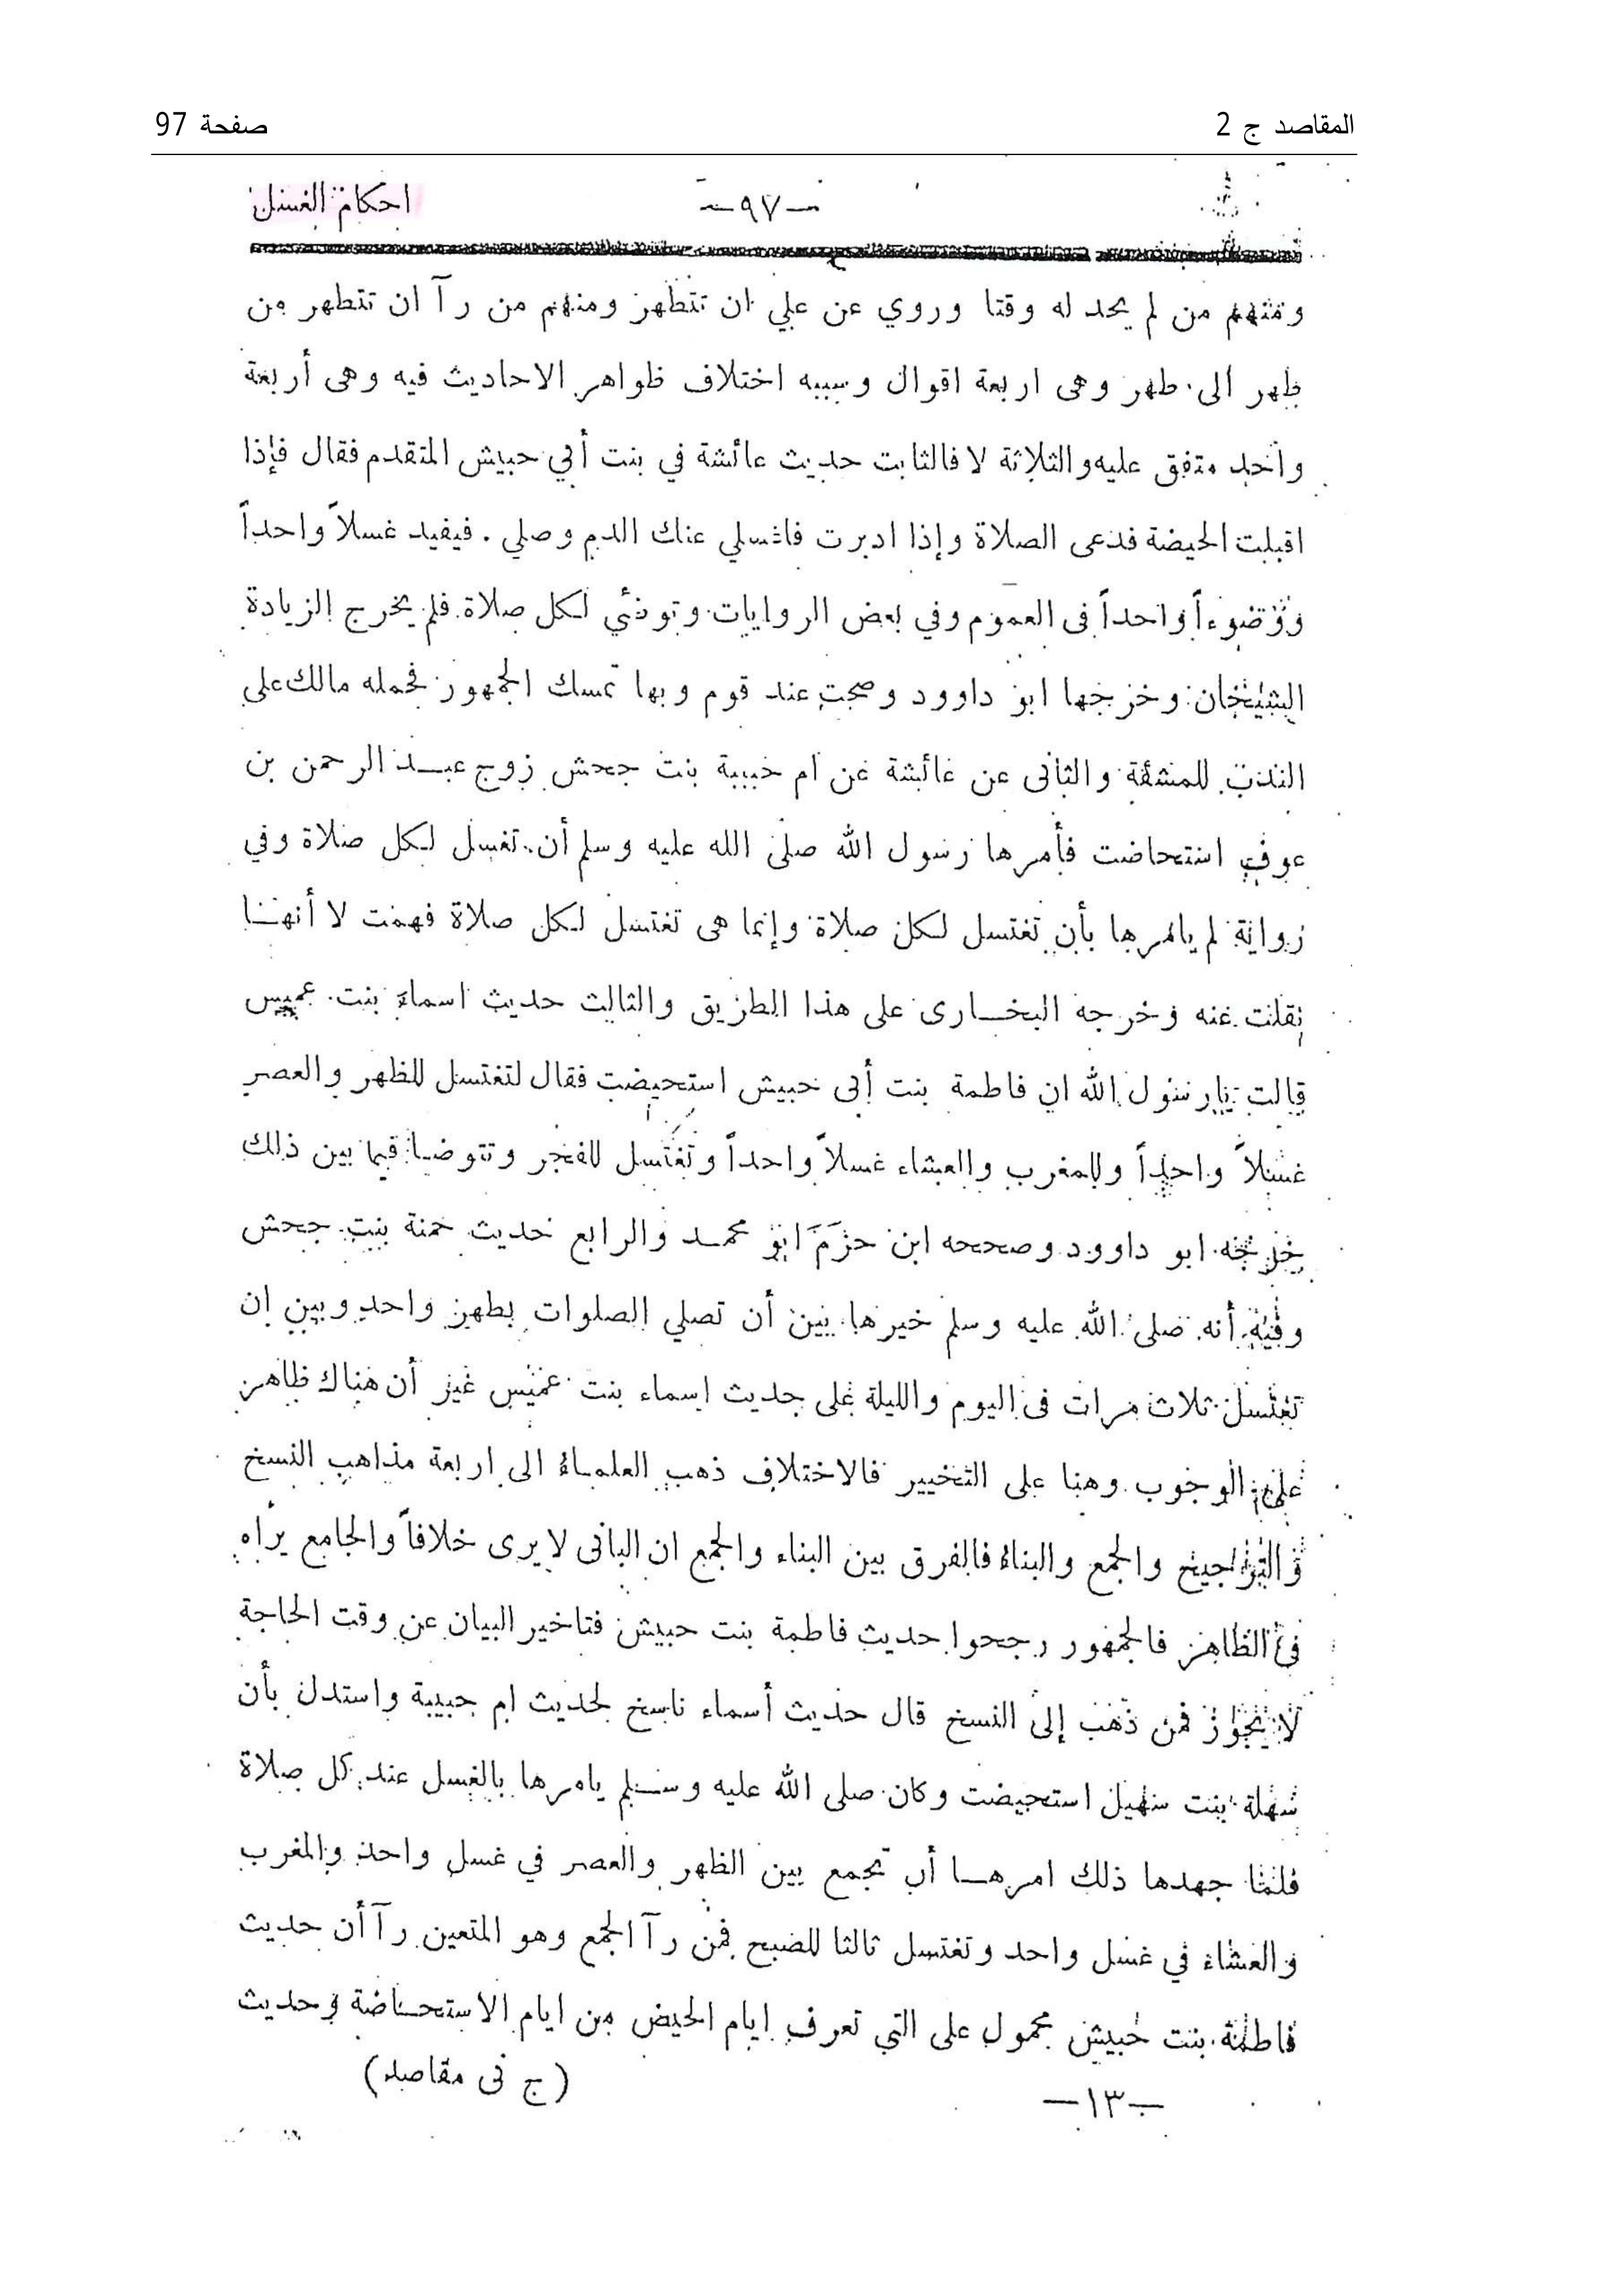 المقاصد ج 2
صفحة 97
احكام الغسل
—٩٧—
ومنهم من لم يحد له وقتا وروي عن علي ان تتطهر ومنهم من رآ ان تتطهر من
طهر الى طهر وهى اربعة اقوال وسببه اختلاف ظواهر الاحاديث فيه وهى أربعة
واحد متفق عليه والثلاثة لا فالثابت حديث عائشة في بنت أبي حبيش المتقدم فقال فإذا
اقبلت الحيضة فدعى الصلاة وإذا ادبرت فاغسلي عنك الدم وصلي . فيفيد غسلاً واحداً
ووضوءاً واحداً فى العموم وفي بعض الروايات وتوضئي لكل صلاة فلم يخرج الزيادة
الشيخان وخرجها ابو داوود وصحت عند قوم وبها تمسك الجمهور فحمله مالك على
الندب للمشقة والثانى عن عائشة عن ام حبيبة بنت جحش زوج عبد الرحمن بن
عوف استحاضت فأمرها رسول الله صلى الله عليه وسلم أن تغسل لكل صلاة وفي
رواية لم يامرها بأن تغتسل لكل صلاة وإنما هى تغتسل لكل صلاة فهمت لا أنها
نقلت عنه وخرجه البخارى على هذا الطريق والثالث حديث اسماء بنت عميس
قالت يارسول الله ان فاطمة بنت أبى حبيش استحيضت فقال لتغتسل للظهر والعصر
غسلاً واحداً وللمغرب والعشاء غسلاً واحداً وتغتسل للفجر وتتوضا فيما بين ذلك
خرجه ابو داوود وصححه ابن حزم ابو محمد والرابع حديث حمنة بنت جحش
وفيه أنه صلى الله عليه وسلم خيرها بين أن تصلي الصلوات بطهر واحد وبين ان
تغتسل ثلاث مرات فى اليوم والليلة على حديث اسماء بنت عميس غير أن هناك ظاهر
على الوجوب وهنا على التخيير فالاختلاف ذهب العلماء الى اربعة مذاهب النسخ
والتراجيح والجمع والبناء فالفرق بين البناء والجمع ان البانى لا يرى خلافاً والجامع يراه
فى الظاهر فالجمهور رجحوا حديث فاطمة بنت حبيش فتاخير البيان عن وقت الحاجة
لا يجوز فمن ذهب إلى النسخ قال حديث أسماء ناسخ لحديث ام حبيبة واستدل بأن
سهلة بنت سهيل استحيضت وكان صلى الله عليه وسلم يامرها بالغسل عند كل صلاة
فلما جهدها ذلك امرها أن تجمع بين الظهر والعصر في غسل واحد والمغرب
والعشاء في غسل واحد وتغتسل ثالثا للصبح فمن رآ الجمع وهو المتعين رآ أن حديث
فاطمة بنت حبيش محمول على التي تعرف ايام الحيض من ايام الاستحاضة وحديث
—١٣—
(ج نى مقاصد)